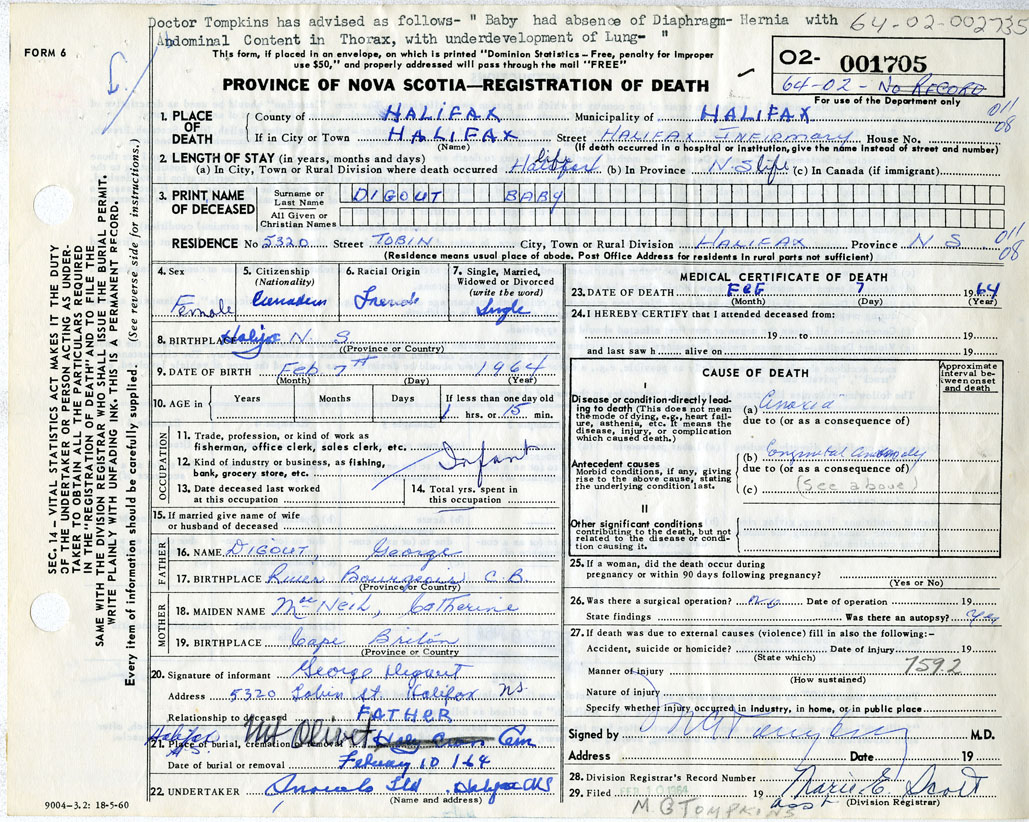 Doctor Tompkins has advised as follows- " Baby had absence of Diaphragm- Hernia with
Abdominal Content in Thorax, with underdevelopment of Lung- "
64-02-002735
FORM 6
This form, if placed in an envelope, on which is printed "Dominion Statistics - Free, penalty for improper
use $50," and properly addressed will pass through the mail "FREE"
O2- 001705
64-02 - No RECORD
For use of the Department only
PROVINCE OF NOVA SCOTIA—REGISTRATION OF DEATH
1. PLACE OF DEATH
County of HALIFAX Municipality of HALIFAX 011 08
If in City or Town HALIFAX Street HALIFAX INFIRMARY House No.
(Name) (If death occurred in a hospital or institution, give the name instead of street and number)
2. LENGTH OF STAY (in years, months and days)
(a) In City, Town or Rural Division where death occurred Halifax life (b) In Province N.S life (c) In Canada (if immigrant)
3. PRINT NAME OF DECEASED
Surname or Last Name DIGOUT BABY
All Given or Christian Names
RESIDENCE No 5320 Street TOBIN City, Town or Rural Division HALIFAX Province N S 011 08
(Residence means usual place of abode. Post Office Address for residents in rural parts not sufficient)
SEC. 14 - VITAL STATISTICS ACT MAKES IT THE DUTY
OF THE UNDERTAKER OR PERSON ACTING AS UNDER-
TAKER TO OBTAIN ALL THE PARTICULARS REQUIRED
IN THE "REGISTRATION OF DEATH" AND TO FILE THE
SAME WITH THE DIVISION REGISTRAR WHO SHALL ISSUE THE BURIAL PERMIT.
WRITE PLAINLY WITH UNFADING INK. THIS IS A PERMANENT RECORD.
Every item of information should be carefully supplied. (See reverse side for instructions.)
4. Sex Female
5. Citizenship (Nationality) Canadian
6. Racial Origin French
7. Single, Married, Widowed or Divorced (write the word) Single
8. BIRTHPLACE Halifax N S
(Province or Country)
9. DATE OF BIRTH Feb 7th 1964
(Month) (Day) (Year)
10. AGE in Years Months Days If less than one day old
1 hrs. or 15 min.
OCCUPATION
11. Trade, profession, or kind of work as
fisherman, office clerk, sales clerk, etc.
Infant
12. Kind of industry or business, as fishing,
bank, grocery store, etc.
13. Date deceased last worked
at this occupation
14. Total yrs. spent in
this occupation
15. If married give name of wife
or husband of deceased
FATHER
16. NAME DIGOUT, George
17. BIRTHPLACE River Bourgeois C.B.
(Province or Country)
MOTHER
18. MAIDEN NAME MacNeil, Catherine
19. BIRTHPLACE Cape Briton
(Province or Country)
20. Signature of informant George Digout
Address 5320 Tobin St. Halifax NS
Relationship to deceased FATHER
21. Place of burial, cremation or removal Mt Olivet Holy Cross Cem
Halifax N.S.
Date of burial or removal February 10 / 64
22. UNDERTAKER Ltd. Halifax NS
(Name and address)
9004-3.2: 18-5-60
MEDICAL CERTIFICATE OF DEATH
23. DATE OF DEATH FEB 7 1964
(Month) (Day) (Year)
24. I HEREBY CERTIFY that I attended deceased from:
19 to 19
and last saw h alive on 19
CAUSE OF DEATH
Approximate interval between onset and death
I
Disease or condition directly lead-
ing to death (This does not mean
the mode of dying, e.g., heart fail-
ure, asthenia, etc. It means the
disease, injury, or complication
which caused death.)
(a) Anoxia
due to (or as a consequence of)
Antecedent causes
Morbid conditions, if any, giving
rise to the above cause, stating
the underlying condition last.
(b) Congenital Anomaly
due to (or as a consequence of)
(c) (See above)
II
Other significant conditions
contributing to the death, but not
related to the disease or condi-
tion causing it.
25. If a woman, did the death occur during
pregnancy or within 90 days following pregnancy?
(Yes or No)
26. Was there a surgical operation? No Date of operation 19
State findings Was there an autopsy? Yes
27. If death was due to external causes (violence) fill in also the following:-
Accident, suicide or homicide? Date of injury 19
(State which)
7592
Manner of injury
(How sustained)
Nature of injury
Specify whether injury occurred in industry, in home, or in public place
Signed by M G Tompkins M.D.
Address Date 19
28. Division Registrar's Record Number
29. Filed FEB 10 1964 19 Marie E. Scott
Asst (Division Registrar)
M. G TOMPKINS